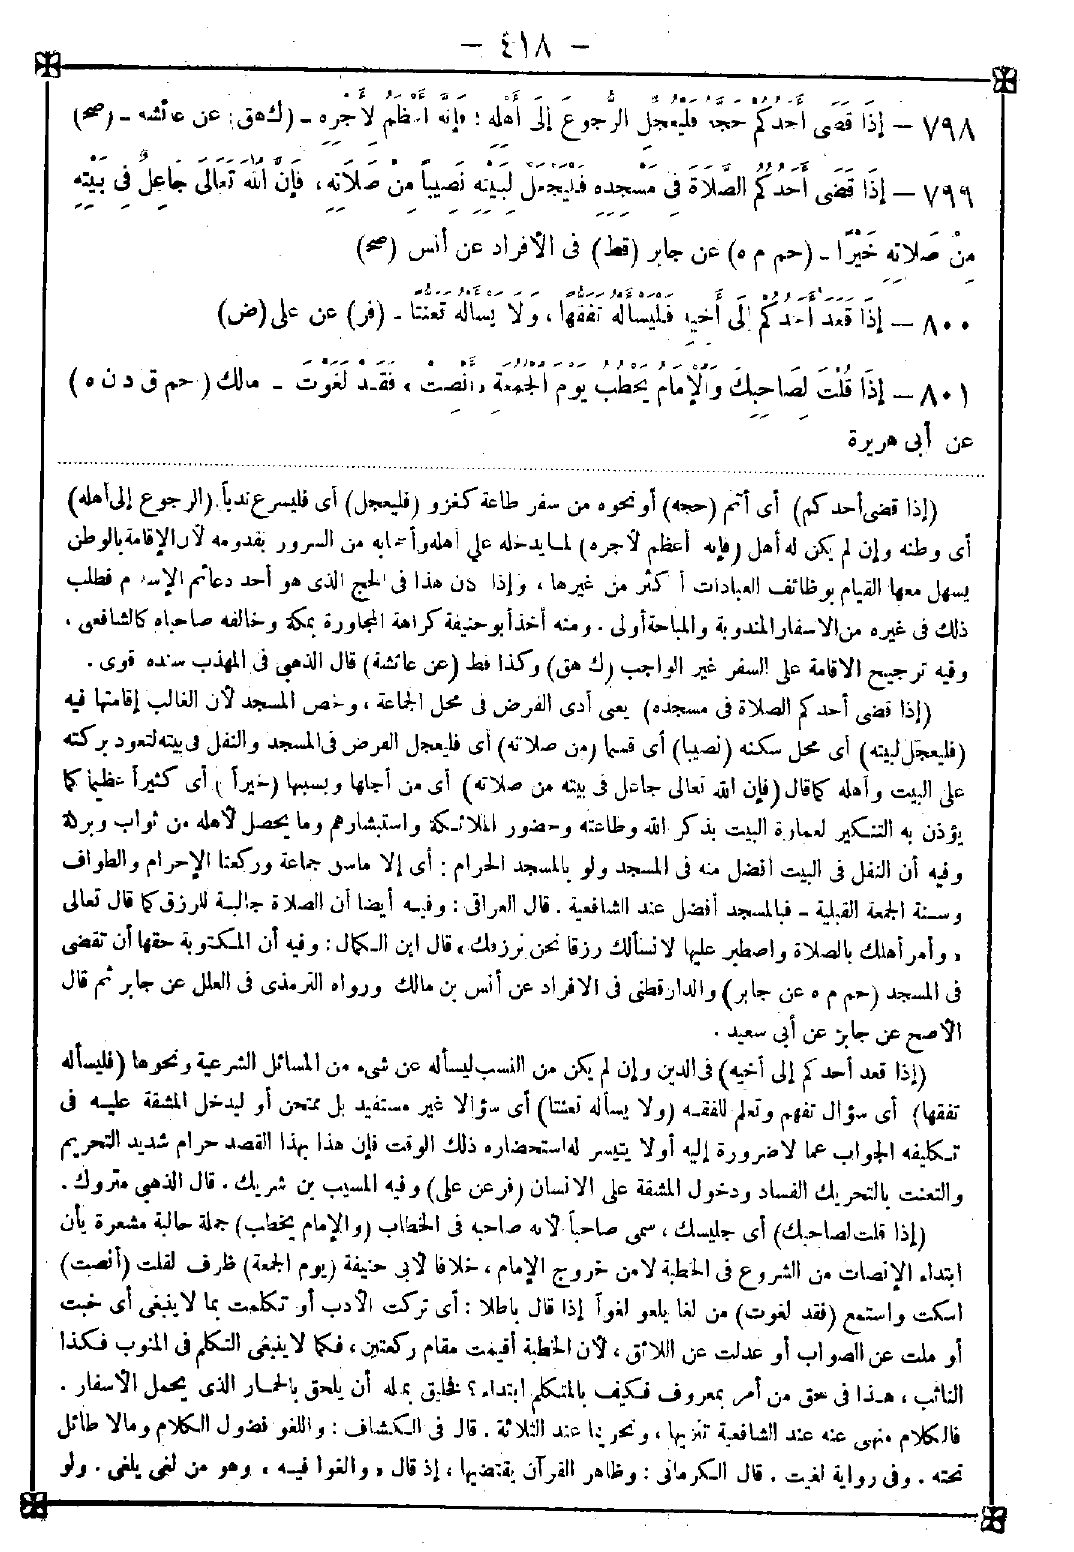 – ٤١٨ –
٧٩٨ – إِذَا قَضَى أَحَدُكُمْ حَجَّهُ فَلْيُعَجِّلِ الرُّجُوعَ إِلَى أَهْلِهِ ؛ فَإِنَّهُ أَعْظَمُ لِأَجْرِهِ – (ك هق) عن عائشة – (صح)
٧٩٩ – إِذَا قَضَى أَحَدُكُمُ الصَّلَاةَ فِى مَسْجِدِهِ فَلْيَجْعَلْ لِبَيْتِهِ نَصِيباً مِنْ صَلَاتِهِ ، فَإِنَّ اللهَ تَعَالَى جَاعِلٌ فِى بَيْتِهِ
مِنْ صَلَاتِهِ خَيْرًا – (حم م ه) عن جابر (قط) فى الأفراد عن أنس (صح)
٨٠٠ – إِذَا قَعَدَ أَحَدُكُمْ إِلَى أَخِيهِ فَلْيَسْأَلْهُ تَفَقُّهًا ، وَلَا يَسْأَلْهُ تَعَنُّتًا – (فر) عن على (ض)
٨٠١ – إِذَا قُلْتَ لِصَاحِبِكَ وَالْإِمَامُ يَخْطُبُ يَوْمَ الْجُمُعَةِ «أَنْصِتْ» فَقَدْ لَغَوْتَ – مالك (حم ق د ن ه)
عن أبى هريرة
(إذا قضى أحدكم) أى أتم (حجه) أو نحوه من سفر طاعة كغزو (فليعجل) أى فليسرع ندباً (الرجوع إلى أهله)
أى وطنه وإن لم يكن له أهل (فإنه أعظم لأجره) لما يدخله على أهله وأصحابه من السرور بقدومه لأن الإقامة بالوطن
يسهل معها القيام بوظائف العبادات أكثر من غيرها ، وإذا كان هذا فى الحج الذى هو أحد دعائم الإسلام فطلب
ذلك فى غيره من الاسفار المندوبة والمباحة أولى . ومنه أخذ أبو حنيفة كراهة المجاورة بمكة وخالفه صاحباه كالشافعى ،
وفيه ترجيح الاقامة على السفر غير الواجب (ك هق) وكذا قط (عن عائشة) قال الذهبى فى المهذب سنده قوى .
(إذا قضى أحدكم الصلاة فى مسجده) يعنى أدى الفرض فى محل الجماعة ، وخص المسجد لأن الغالب إقامتها فيه
(فليجعل لبيته) أى محل سكنه (نصيبا) أى قسما (من صلاته) أى فليجعل الفرض فى المسجد والنفل فى بيته لتعود بركته
على البيت وأهله كما قال (فإن الله تعالى جاعل فى بيته من صلاته) أى من أجلها وبسببها (خيراً) أى كثيراً عظيما كما
يؤذن به التنكير لعمارة البيت بذكر الله وطاعته وحضور الملائكة واستبشارهم وما يحصل لأهله من ثواب وبركة
وفيه أن النفل فى البيت أفضل منه فى المسجد ولو بالمسجد الحرام : أى إلا ماسن جماعة وركعتا الإحرام والطواف
وسنة الجمعة القبلية – فبالمسجد أفضل عند الشافعية . قال العراقى : وفيه أيضا أن الصلاة جالبة للرزق كما قال تعالى
«وأمر أهلك بالصلاة واصطبر عليها لا نسألك رزقا نحن نرزقك» قال ابن الكمال : وفيه أن المكتوبة حقها أن تقضى
فى المسجد (حم م ه عن جابر) والدارقطنى فى الافراد عن أنس بن مالك ورواه الترمذى فى العلل عن جابر ثم قال
الأصح عن جابر عن أبى سعيد .
(إذا قعد أحدكم إلى أخيه) فى الدين وإن لم يكن من النسب ليسأله عن شىء من المسائل الشرعية ونحوها (فليسأله
تفقها) أى سؤال تفهم وتعلم للفقه (ولا يسأله تعنتا) أى سؤالا غير مستفيد بل ممتحن أو ليدخل المشقة عليه فى
تكليفه الجواب عما لا ضرورة إليه أو لا يتيسر له استحضاره ذلك الوقت فإن هذا بهذا القصد حرام شديد التحريم
والتعنت بالتحريك الفساد ودخول المشقة على الانسان (فر عن على) وفيه المسيب بن شريك . قال الذهبى متروك .
(إذا قلت لصاحبك) أى جليسك ، سمى صاحباً لأنه صاحبه فى الخطاب (والإمام يخطب) جملة حالية مشعرة بأن
ابتداء الإنصات من الشروع فى الخطبة لا من خروج الإمام ، خلافا لأبى حنيفة (يوم الجمعة) ظرف لقلت (أنصت)
اسكت واستمع (فقد لغوت) من لغا يلغو لغواً إذا قال باطلا : أى تركت الأدب أو تكلمت بما لا ينبغى أى خبت
أو ملت عن الصواب أو عدلت عن اللائق ، لأن الخطبة أقيمت مقام ركعتين ، فكما لا ينبغى التكلم فى المنوب فكذا
النائب ، هذا فى حق من أمر بمعروف فكيف بالمتكلم ابتداء ؟ فخليق بمثله أن يلحق بالحمار الذى يحمل الأسفار .
فالكلام منهى عنه عند الشافعية تنزيها ، وتحريما عند الثلاثة . قال فى الكشاف : واللغو فضول الكلام ومالا طائل
تحته . وفى رواية لغيت . قال الكرمانى : وظاهر القرآن يقتضيها ، إذ قال «والغوا فيه» وهو من لغى يلغى . ولو